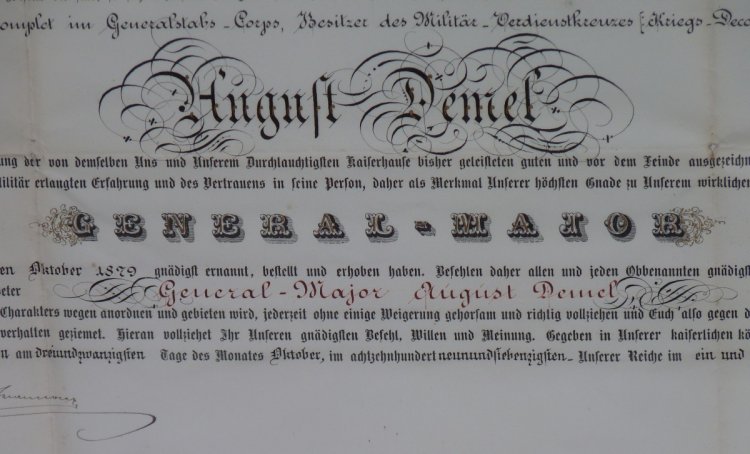 complet im Generalstabs-Corps, Besitzer des Militär-Verdienstkreuzes (Kriegs-Deco
August Demel
ung der von demselben Uns und Unserem Durchlauchtigsten Kaiserhause bisher geleisteten guten und vor dem Feinde ausgezeichn
Militär erlangten Erfahrung und des Vertrauens in seine Person, daher als Merkmal Unserer höchsten Gnade zu Unserem wirklichen
GENERAL-MAJOR
en Oktober 1879 gnädigst ernannt, bestellt und erhoben haben. Befehlen daher allen und jeden Obbenannten gnädigst
eter General-Major August Demel,
Charakters wegen anordnen und gebieten wird, jederzeit ohne einige Weigerung gehorsam und richtig vollziehen und Euch also gegen d
verhalten geziemet. Hieran vollziehet Ihr Unseren gnädigsten Befehl, Willen und Meinung. Gegeben in Unserer kaiserlichen kö
n am dreiundzwanzigsten Tage des Monates Oktober, im achtzehnhundert neunundsiebenzigsten- Unserer Reiche im ein und